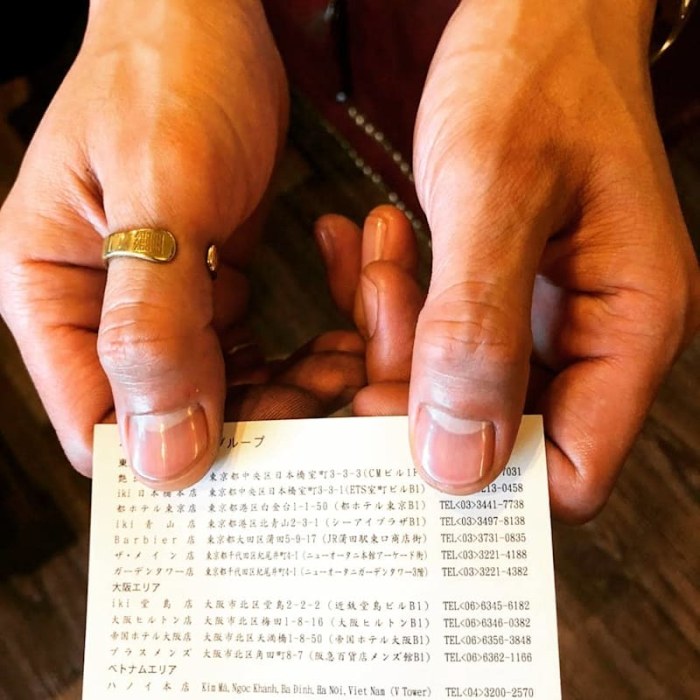 ループ
東
艶 東京都中央区日本橋室町3-3-3(CMビル1F 7031
iki 日本橋本店 東京都中央区日本橋室町3-3-1(ETS室町ビルB1) 3213-0458
都ホテル東京店 東京都港区白金台1-1-50 (都ホテル東京B1) TEL<03>3441-7738
iki 青山店 東京都港区北青山2-3-1 (シーアイプラザB1) TEL<03>3497-8138
Barbier 店 東京都大田区蒲田5-9-17 (JR蒲田駅東口商店街) TEL<03>3731-0835
ザ・メイン店 東京都千代田区紀尾井町4-1 (ニューオータニ本館アーケード街) TEL<03>3221-4188
ガーデンタワー店 東京都千代田区紀尾井町4-1 (ニューオータニガーデンタワー3階) TEL<03>3221-4382
大阪エリア
iki 堂島店 大阪市北区堂島2-2-2 (近鉄堂島ビルB1) TEL<06>6345-6182
大阪ヒルトン店 大阪市北区梅田1-8-16 (大阪ヒルトンB1) TEL<06>6346-0382
帝国ホテル大阪店 大阪市北区天満橋1-8-50 (帝国ホテル大阪B1) TEL<06>6356-3848
プラスメンズ 大阪市北区角田町8-7 (阪急百貨店メンズ館B1) TEL<06>6362-1166
ベトナムエリア
ハノイ本店 Kim Mã, Ngoc Khanh, Ba Dinh, Ha Nói, Viet Nam (V Tower) TEL<04>3200-2570